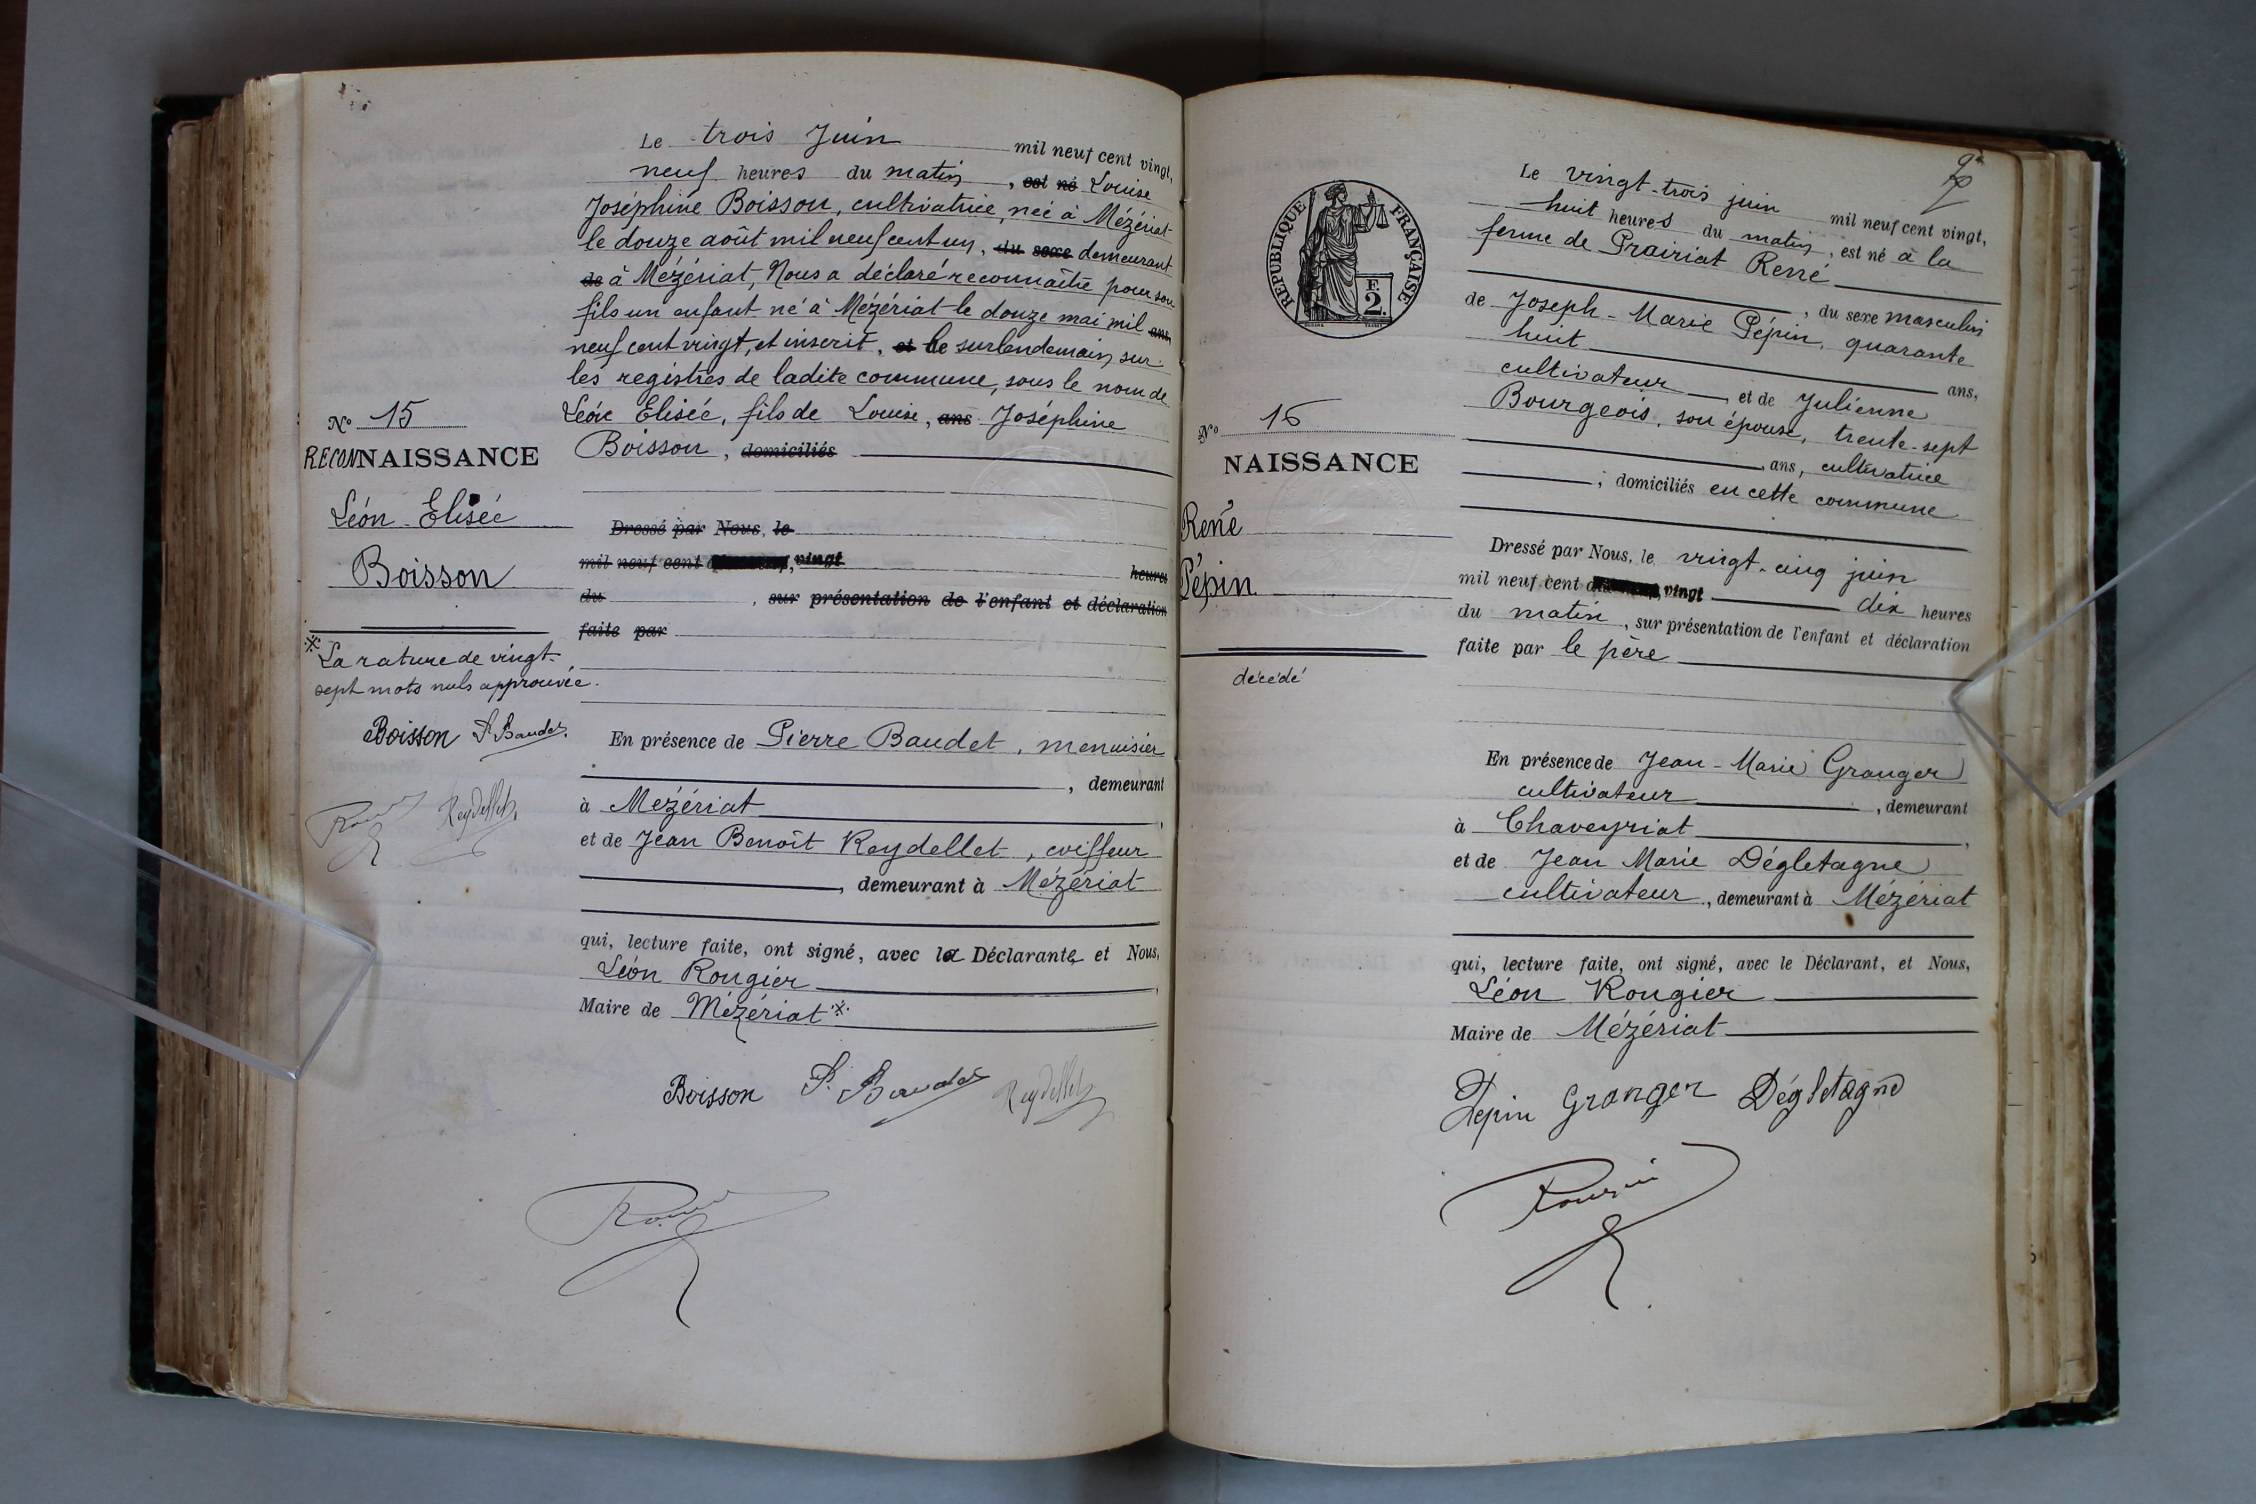 Le trois Juin mil neuf cent vingt,
neuf heures du matin, est né Louise
Joséphine Boisson, cultivatrice, née à Mézériat
le douze août mil neuf cent un, du sexe demeurant
de à Mézériat, Nous a déclaré reconnaître pour son
fils un enfant né à Mézériat le douze mai mil ans
neuf cent vingt, et inscrit, et le surlendemain sur
les registres de ladite commune, sous le nom de
Léon Elisée, fils de Louise, ans Joséphine
Boisson, domiciliés
N° 15
RECONNAISSANCE
Léon Elisée
Boisson
Dressé par Nous, le
mil neuf cent vingt heures
du , sur présentation de l'enfant et déclaration
faite par
※ La rature de vingt-
sept mots nuls approuvée.
Boisson P. Baudet
Reydellet
En présence de Pierre Baudet, menuisier
, demeurant
à Mézériat,
et de Jean Benoît Reydellet, coiffeur
, demeurant à Mézériat
qui, lecture faite, ont signé, avec la Déclarante et Nous,
Léon Rougier
Maire de Mézériat ※
Boisson P. Baudet Reydellet
RÉPUBLIQUE FRANÇAISE
F.
2.
Le vingt-trois juin mil neuf cent vingt,
huit heures du matin, est né à la
ferme de Prairiat René
, du sexe masculin
de Joseph-Marie Pépin, quarante
huit ans,
cultivateur et de Julienne
Bourgeois, son épouse, trente-sept
ans, cultivatrice
; domiciliés en cette commune
N° 16
NAISSANCE
René
Pépin
décédé
Dressé par Nous, le vingt-cinq juin
mil neuf cent vingt dix heures
du matin, sur présentation de l'enfant et déclaration
faite par le père
En présence de Jean-Marie Granger
cultivateur, demeurant
à Chaveyriat,
et de Jean Marie Dégletagne
cultivateur, demeurant à Mézériat
qui, lecture faite, ont signé, avec le Déclarant, et Nous,
Léon Rougier
Maire de Mézériat
Pepin Granger Dégletagne
Rougier